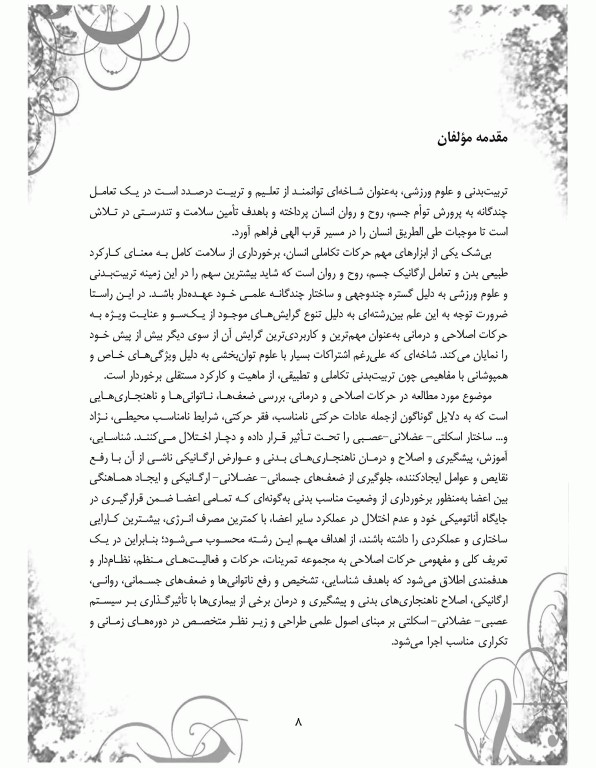 مقدمه مؤلفان
تربیت‌بدنی و علوم ورزشی، به‌عنوان شاخه‌ای توانمند از تعلیم و تربیت درصدد است در یک تعامل
چندگانه به پرورش توأم جسم، روح و روان انسان پرداخته و باهدف تأمین سلامت و تندرستی در تلاش
است تا موجبات طی الطریق انسان را در مسیر قرب الهی فراهم آورد.
بی‌شک یکی از ابزارهای مهم حرکات تکاملی انسان، برخورداری از سلامت کامل به معنای کارکرد
طبیعی بدن و تعامل ارگانیک جسم، روح و روان است که شاید بیشترین سهم را در این زمینه تربیت‌بدنی
و علوم ورزشی به دلیل گستره چندوجهی و ساختار چندگانه علمی خود عهده‌دار باشد. در این راستا
ضرورت توجه به این علم بین‌رشته‌ای به دلیل تنوع گرایش‌های موجود از یک‌سو و عنایت ویژه به
حرکات اصلاحی و درمانی به‌عنوان مهم‌ترین و کاربردی‌ترین گرایش آن از سوی دیگر بیش از پیش خود
را نمایان می‌کند. شاخه‌ای که علی‌رغم اشتراکات بسیار با علوم توان‌بخشی به دلیل ویژگی‌های خاص و
همپوشانی با مفاهیمی چون تربیت‌بدنی تکاملی و تطبیقی، از ماهیت و کارکرد مستقلی برخوردار است.
موضوع مورد مطالعه در حرکات اصلاحی و درمانی، بررسی ضعف‌ها، ناتوانی‌ها و ناهنجاری‌هایی
است که به دلایل گوناگون ازجمله عادات حرکتی نامناسب، فقر حرکتی، شرایط نامناسب محیطی، نژاد
و... ساختار اسکلتی- عضلانی-عصبی را تحت تأثیر قرار داده و دچار اختلال می‌کنند. شناسایی،
آموزش، پیشگیری و اصلاح و درمان ناهنجاری‌های بدنی و عوارض ارگانیکی ناشی از آن با رفع
نقایص و عوامل ایجادکننده، جلوگیری از ضعف‌های جسمانی- عضلانی- ارگانیکی و ایجاد هماهنگی
بین اعضا به‌منظور برخورداری از وضعیت مناسب بدنی به‌گونه‌ای که تمامی اعضا ضمن قرارگیری در
جایگاه آناتومیکی خود و عدم اختلال در عملکرد سایر اعضا، با کمترین مصرف انرژی، بیشترین کارایی
ساختاری و عملکردی را داشته باشند، از اهداف مهم این رشته محسوب می‌شود؛ بنابراین در یک
تعریف کلی و مفهومی حرکات اصلاحی به مجموعه تمرینات، حرکات و فعالیت‌های منظم، نظام‌دار و
هدفمندی اطلاق می‌شود که باهدف شناسایی، تشخیص و رفع ناتوانی‌ها و ضعف‌های جسمانی، روانی،
ارگانیکی، اصلاح ناهنجاری‌های بدنی و پیشگیری و درمان برخی از بیماری‌ها با تأثیرگذاری بر سیستم
عصبی- عضلانی- اسکلتی بر مبنای اصول علمی طراحی و زیر نظر متخصص در دوره‌های زمانی و
تکراری مناسب اجرا می‌شود.
۸